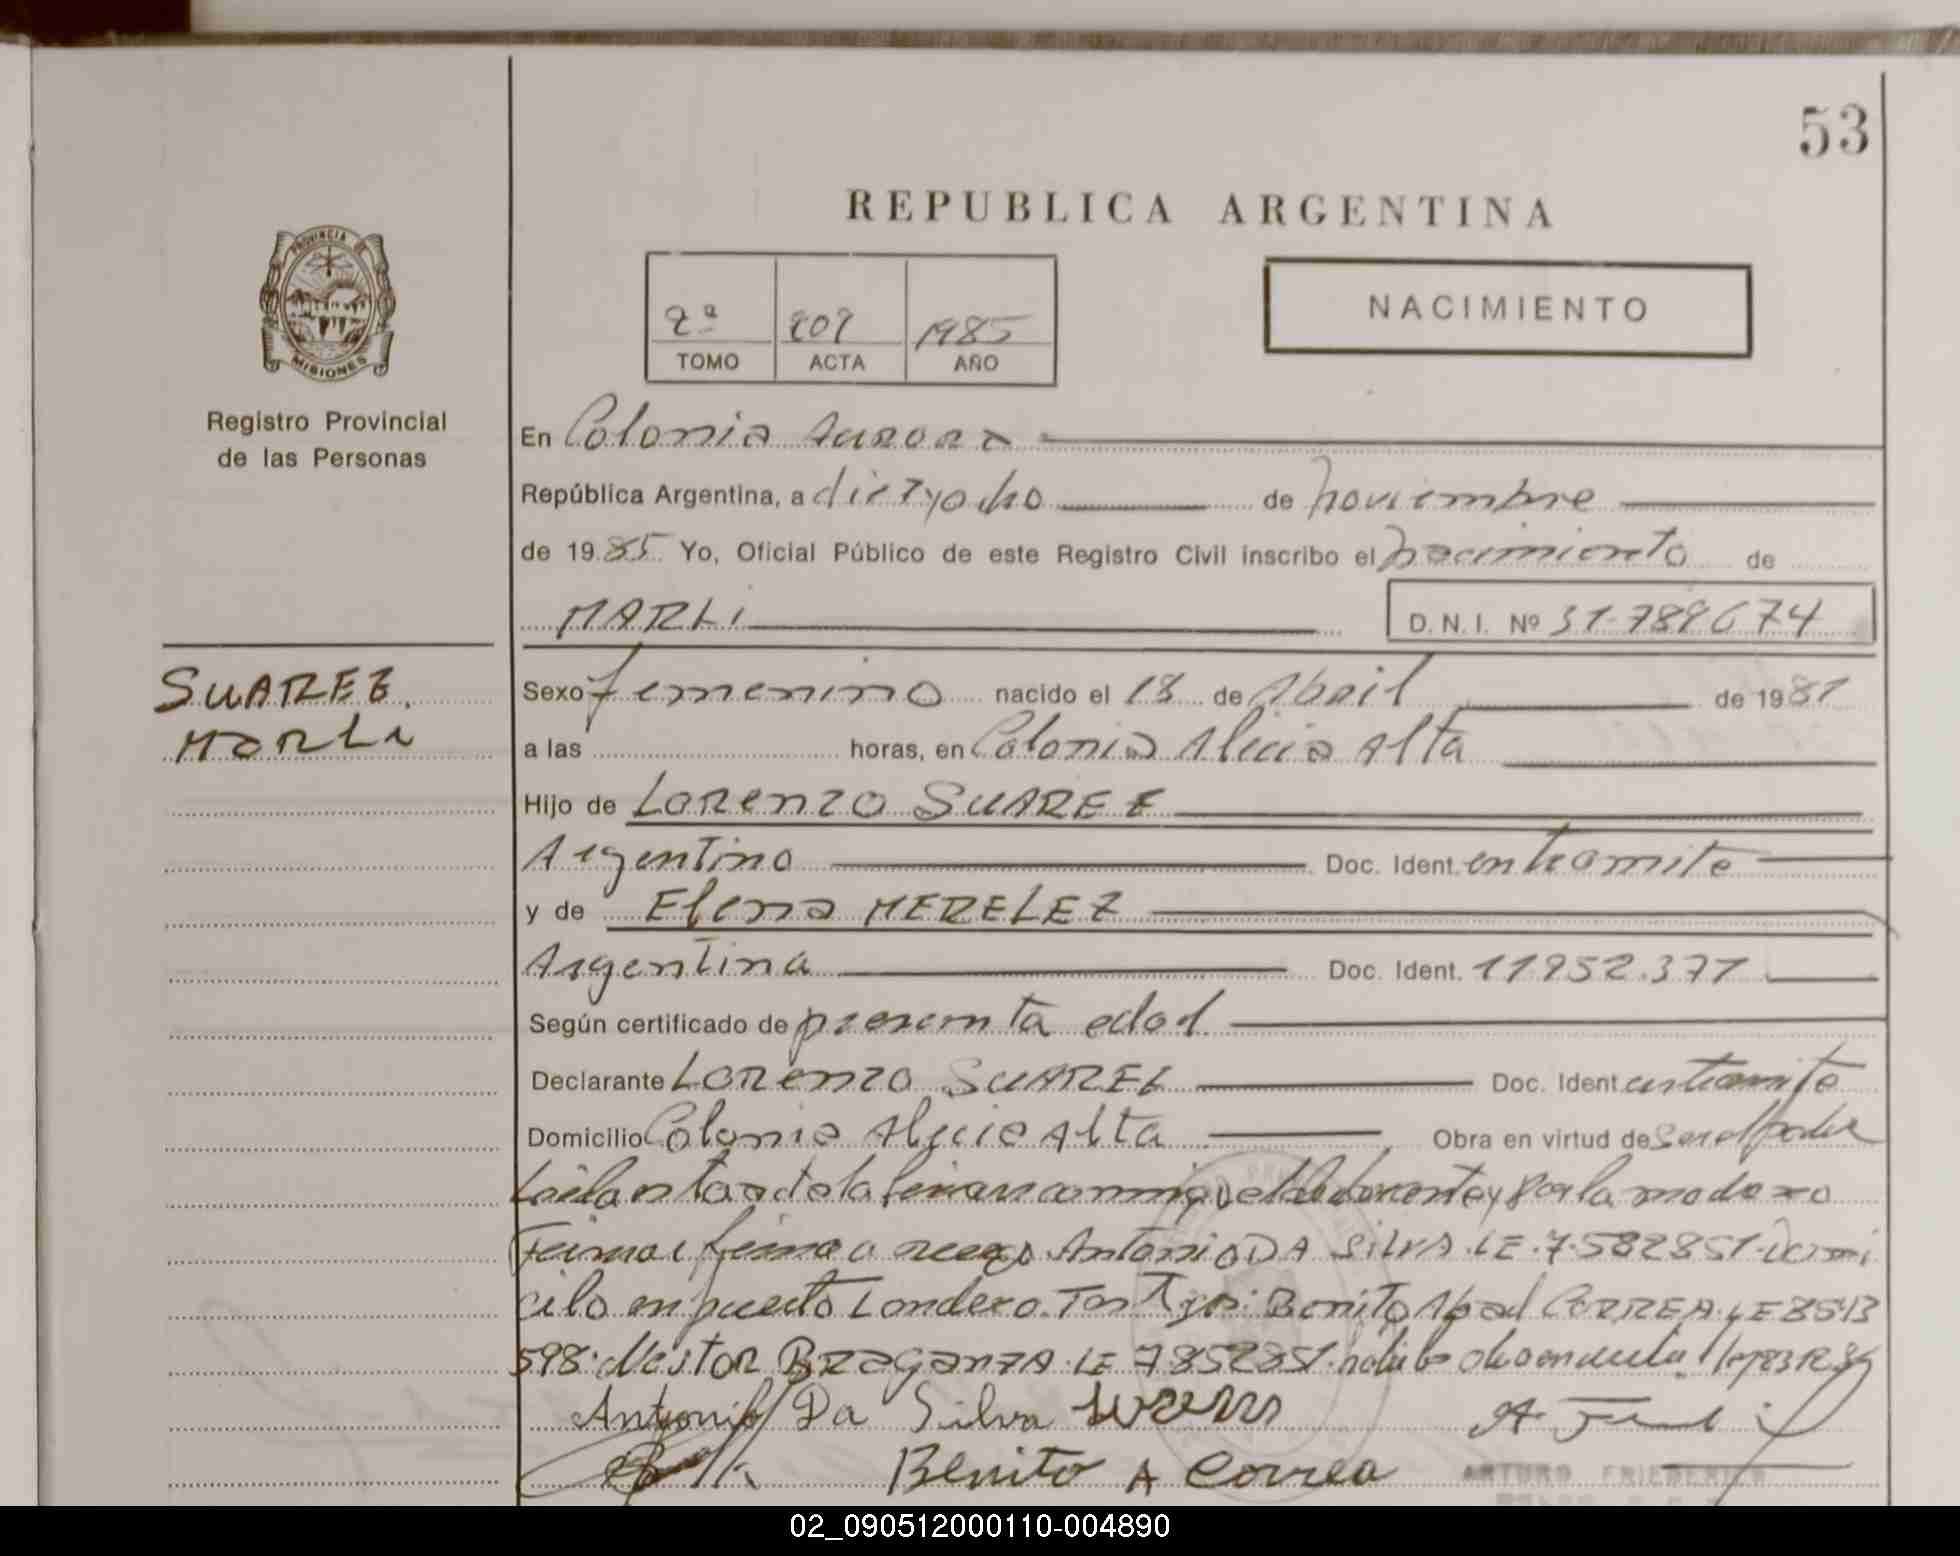 53
REPUBLICA ARGENTINA
PROVINCIA DE
MISIONES
Registro Provincial
de las Personas
2ª 209 1985
TOMO ACTA AÑO
NACIMIENTO
En Colonia Aurora
República Argentina, a dieZyocho de noviembre
de 1985 Yo, Oficial Público de este Registro Civil inscribo el nacimiento de
MARLI D. N. I. Nº 31-789674
SUAREZ
MARLi
Sexo femenino nacido el 18 de Abril de 1981
a las horas, en Colonia Alicia Alta
Hijo de LORENZO SUAREZ
Argentino Doc. Ident. en tramite
y de Elena MERELEZ
Argentina Doc. Ident. 11952.371
Según certificado de presunta edad
Declarante LORENZO SUAREZ Doc. Ident en tramite
Domicilio Colonia Alicia Alta Obra en virtud de ser el padre
Leida el acta la firman conmigo el declarante y por la madre no
firma a ruego Antonio DA SilvA LE 7.582851 Domi
cilo en puerto Londero. Testigos: Benito Abad CORREA LE 8513
598. NestoR BRAganzA LE 7852851
Antonio Da Silva
Benito A Correa
ARTURO FRIEDERICH
02_090512000110-004890